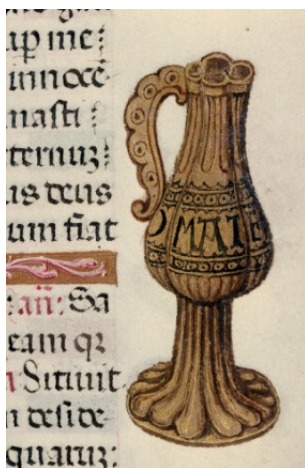 me:
innocē
masti:
ternuz:
us deus
um fiat
añ: Sa
eam qr
Sitiuit
n deside
quartuz:
O MATE